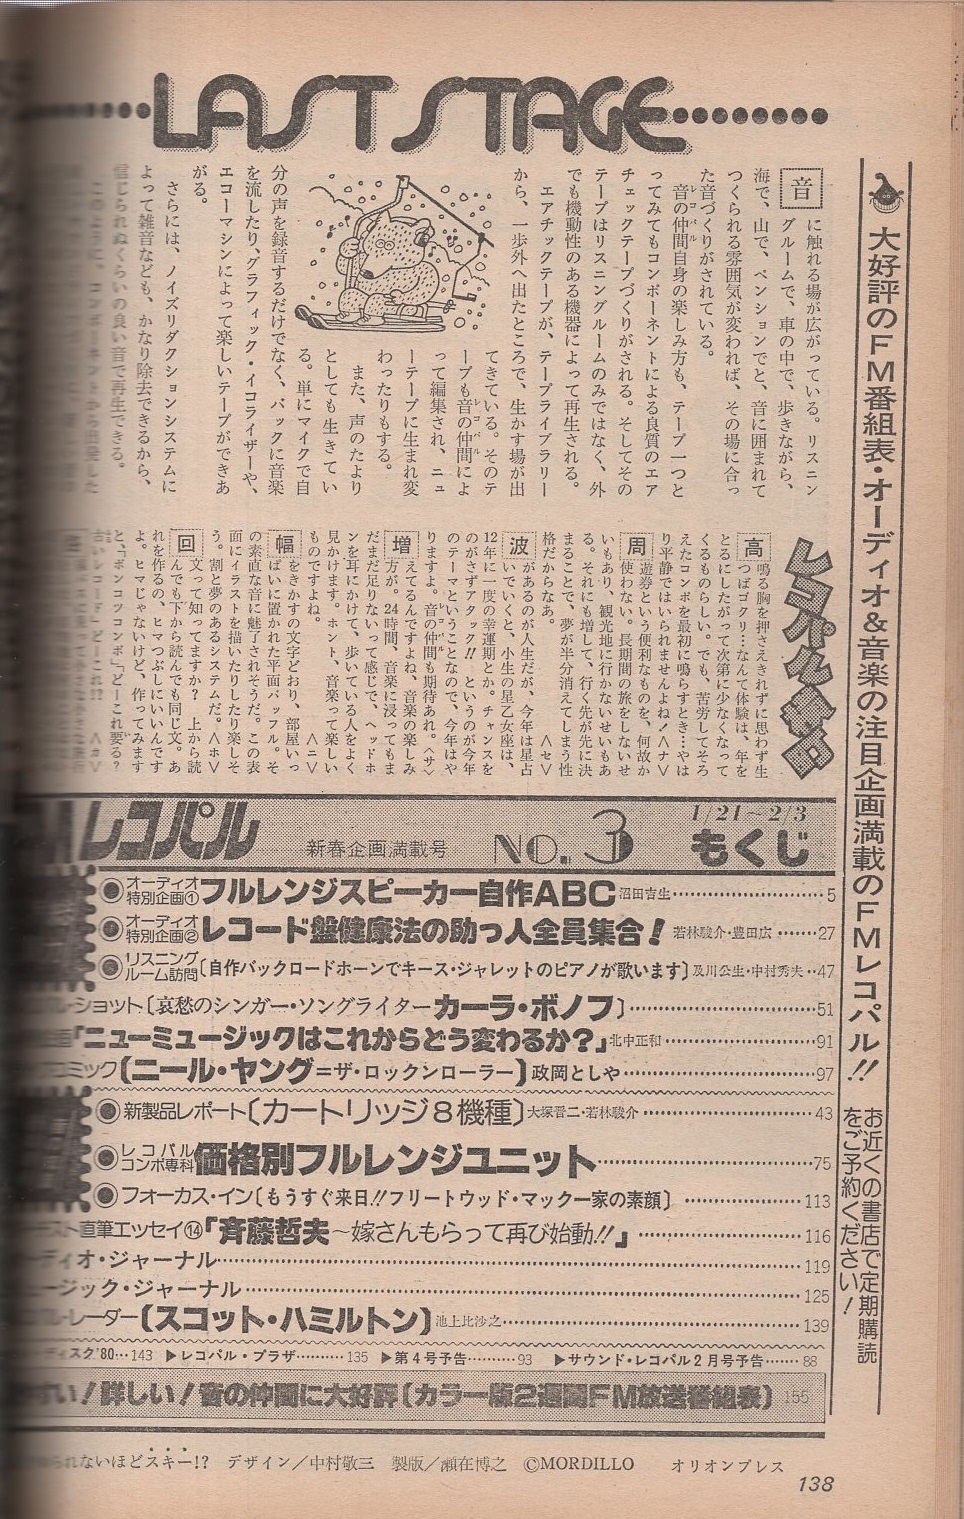 大好評のFM番組表・オーディオ&音楽の注目企画満載のFMレコパル!!
お近くの書店で定期購読
をご予約ください!
LAST STAGE
音に触れる場が広がっている。リスニン
グルームで、車の中で、歩きながら、
海で、山で、ペンションでと、音に囲まれて
つくられる雰囲気が変われば、その場に合っ
た音づくりがされている。
音の仲間自身の楽しみ方も、テープ一つと
ってみてもコンポーネントによる良質のエア
チェックテープづくりがされる。そしてその
テープはリスニングルームのみではなく、外
でも機動性のある機器によって再生される。
エアチックテープが、テープライブラリー
から、一歩外へ出たところで、生かす場が出
てきている。そのテ
ープも音の仲間によ
って編集され、ニュ
ーテープに生まれ変
わったりもする。
また、声のたより
としても生きてい
る。単にマイクで自
分の声を録音するだけでなく、バックに音楽
を流したり、グラフィック・イコライザーや、
エコーマシンによって楽しいテープができあ
がる。
さらには、ノイズリダクションシステムに
よって雑音なども、かなり除去できるから、
信じられぬくらいの良い音で再生できる。
高鳴る胸を押さえきれずに思わず生
つばゴクリ…なんて体験は、年を
とるにしたがって次第に少なくなって
くるものらしい。でも、苦労してそろ
えたコンポを最初に鳴らすとき…やは
り平静ではいられませんよね! 〈ナ〉
周遊券という便利なものを、何故か
使わない。長期間の旅をしないせ
いもあり、観光地に行かないせいもあ
る。それにも増して、行く先が先に決
まることで、夢が半分消えてしまう性
格だからなあ。 〈セ〉
波があるのが人生だが、今年は星占
いでいくと、小生の星乙女座は、
12年に一度の幸運期とか。チャンスを
のがさずアタック!! というのが今年
のテーマということなので、今年はや
りますよ。音の仲間も期待あれ。〈サ〉
増えてるんですよね、音楽の楽しみ
方が。24時間、音楽に浸ってもま
だまだ足りないって感じで、ヘッドホ
ンを耳にかけて、歩いている人をよく
見かけます。ホント、音楽って楽しい
ものですよね。 〈ニ〉
幅をきかすの文字どおり、部屋いっ
ぱいに置かれた平面バッフル。そ
の素直な音に魅了されそうだ。この表
面にイラストを描いたりしたら楽しそ
う。割と夢のあるシステムだ。〈ホ〉
回文って知ってますか? 上から読
んでも下から読んでも同じ文。あ
れを作るの、ヒマつぶしにいいんです
よ。ヒマじゃないけど、作ってみます
と、「ポンコツコンポ」「どーこれ要る?
古いレコード」どーこれ!? 〈ホ〉
レコパル
新春企画満載号
NO.3
1/21~2/3
もくじ
オーディオ特別企画① フルレンジスピーカー自作ABC 沼田吉生 5
オーディオ特別企画② レコード盤健康法の助っ人全員集合! 若林駿介・豊田広 27
リスニングルーム訪問〔自作バックロードホーンでキース・ジャレットのピアノが歌います〕及川公生・中村秀夫 47
ショット〔哀愁のシンガー・ソングライターカーラ・ボノフ〕 51
「ニューミュージックはこれからどう変わるか?」北中正和 91
コミック〔ニール・ヤング=ザ・ロックンローラー〕政岡としや 97
新製品レポート〔カートリッジ8機種〕大塚晋二・若林駿介 43
レコパルコンポ専科 価格別フルレンジユニット 75
フォーカス・イン〔もうすぐ来日!!フリートウッド・マック一家の素顔〕 113
直筆エッセイ⑭『斉藤哲夫~嫁さんもらって再び始動!!』 116
ディオ・ジャーナル 119
ージック・ジャーナル 125
レーダー〔スコット・ハミルトン〕池上比沙之 139
ディスク'80…143 ▶レコパル・プラザ…135 ▶第4号予告…93 ▶サウンド・レコパル2月号予告…88
すい!詳しい!音の仲間に大好評〔カラー版2週間FM放送番組表〕155
られないほどスキー!? デザイン/中村敬三 製版/瀬在博之 ©MORDILLO オリオンプレス
138